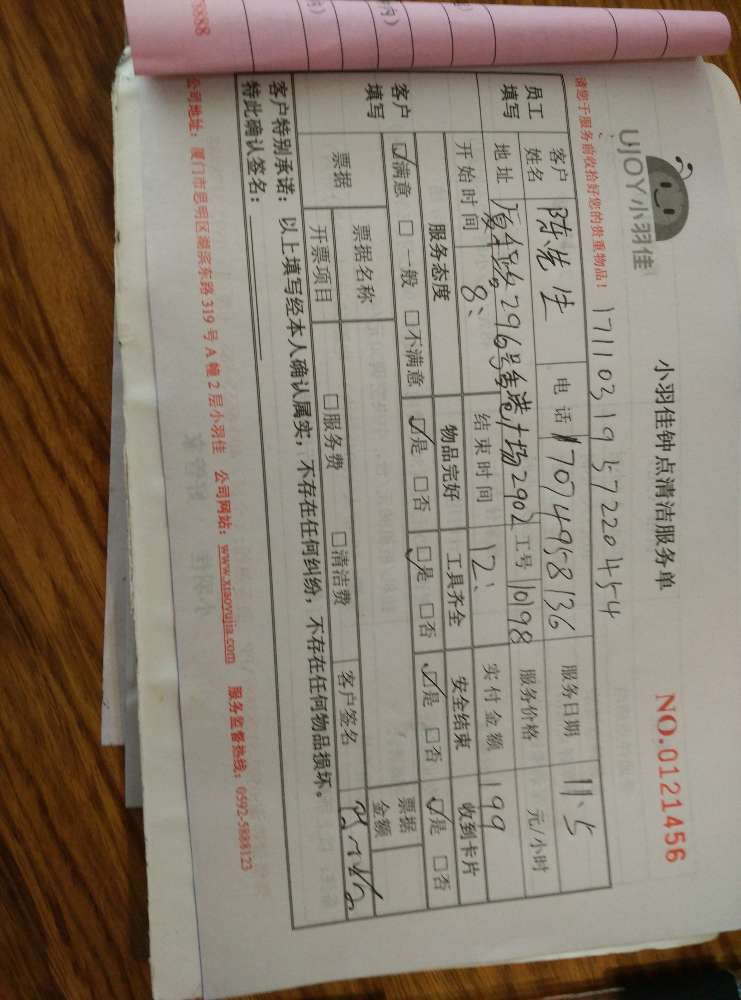 8888
纳)
UJOY小羽佳
小羽佳钟点清洁服务单
NO.0121456
请您于服务前收拾好您的贵重物品!
17110319572204 54
员工填写
客户姓名 陈先生 电话 17074958136 服务日期 11.5
地址 296号 广场2902 工号 10198 服务价格 元/小时
开始时间 8: 结束时间 12: 实付金额 199
客户填写
服务态度 物品完好 工具齐全 安全结束 收到卡片
☑满意 □一般 □不满意 ☑是 □否 ☑是 □否 ☑是 □否 ☑是 □否
票据 票据名称 票据金额
开票项目 □服务费 □清洁费 客户签名
客户特别承诺:以上填写经本人确认属实,不存在任何纠纷,不存在任何物品损坏。
特此确认签名:
公司地址:厦门市思明区湖滨东路319号A幢2层小羽佳 公司网站:www.xiaoyujia.com 服务监督热线:0592-5888123